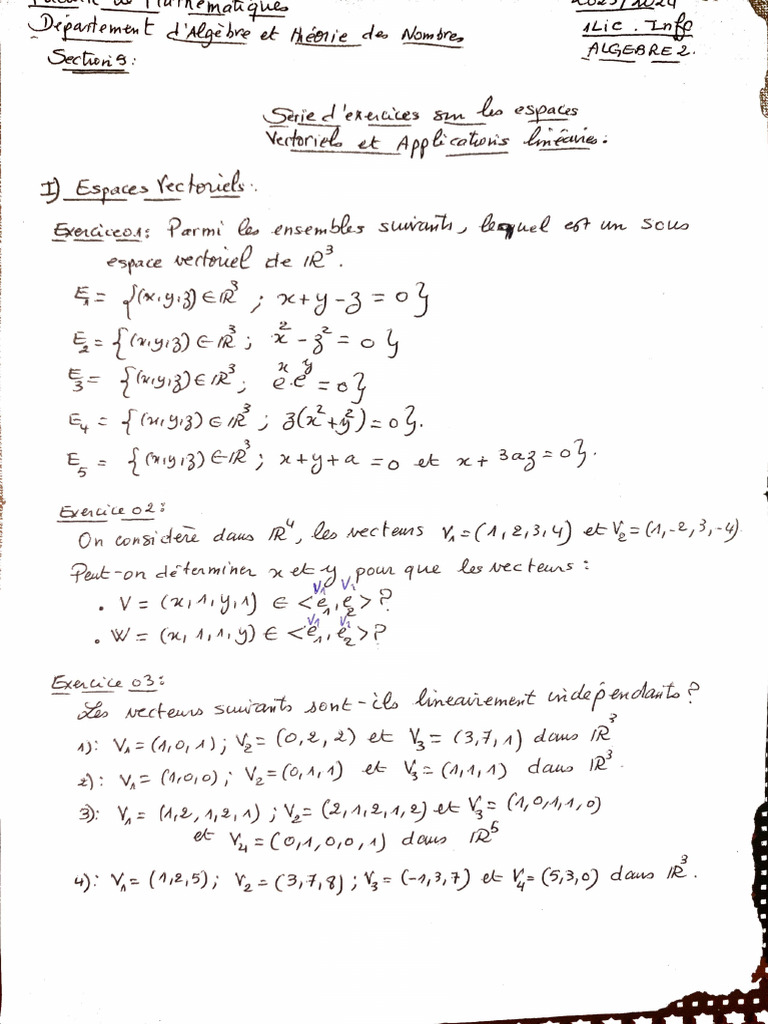 Mathématiques
Département d'Algèbre et théorie des Nombres
Section 9:
2023/2024
1Lic. Info
ALGEBRE 2.
Série d'exercices sur les espaces
Vectoriels et Applications linéaires:
I) Espaces Vectoriels:
Exercice 01: Parmi les ensembles suivants, lequel est un sous
espace vectoriel de IR³.
E₁ = {(x,y,z) ∈ IR³ ; x+y-z = 0}
E₂ = {(x,y,z) ∈ IR³ ; x² - z² = 0}
E₃ = {(x,y,z) ∈ IR³ ; eˣ.eʸ = 0}
E₄ = {(x,y,z) ∈ IR³ ; z(x²+y²) = 0}.
E₅ = {(x,y,z) ∈ IR³ ; x+y+a = 0 et x+3az = 0}.
Exercice 02:
On considère dans IR⁴, les vecteurs V₁=(1,2,3,4) et V₂=(1,-2,3,-4)
Peut-on déterminer x et y pour que les vecteurs:
V₁ V₂
. V = (x,1,y,1) ∈ <e₁,e₂>?
V₁ V₂
. W = (x,1,1,y) ∈ <e₁,e₂>?
Exercice 03:
Les vecteurs suivants sont-ils lineairement indépendants?
1): V₁=(1,0,1); V₂=(0,2,2) et V₃=(3,7,1) dans IR³
2): V₁=(1,0,0); V₂=(0,1,1) et V₃=(1,1,1) dans IR³.
3): V₁=(1,2,1,2,1); V₂=(2,1,2,1,2) et V₃=(1,0,1,1,0)
et V₄=(0,1,0,0,1) dans IR⁵
4): V₁=(1,2,5); V₂=(3,7,8); V₃=(-1,3,7) et V₄=(5,3,0) dans IR³.